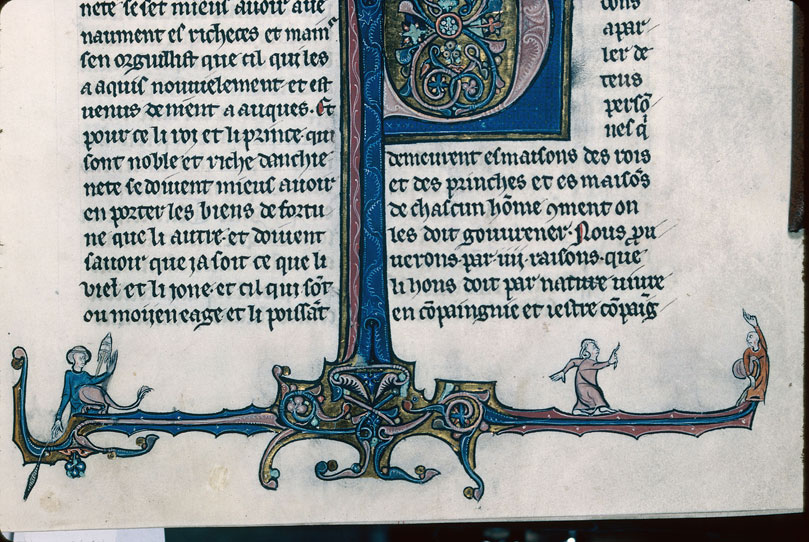 nete se set mieus auoir aue
naument es richeces et mains
sen orguillist que cil qui les
a aquis nouuelement et est
uenus de nient a auques. Et
pour ce li roi et li prince qui
sont noble et riche danchie
nete se doiuent mieus auoir
en porter les biens de fortu
ne que li autre. et doiuent
sauoir que ja soit ce que li
viel et li jone. et cil qui sōt
ou moijen eage et li poissāt
cons
a par
ler de
teus
persō
nes q̄
demeurent es maisons des rois
et des princhės et es maisōs
de chascun hōme ꝯment on
les doit gouurener. Nous ꝓu
uerons par iiij raisons. que
li hons doit par nature uiure
en cōpaingnie et iestre cōpaīg